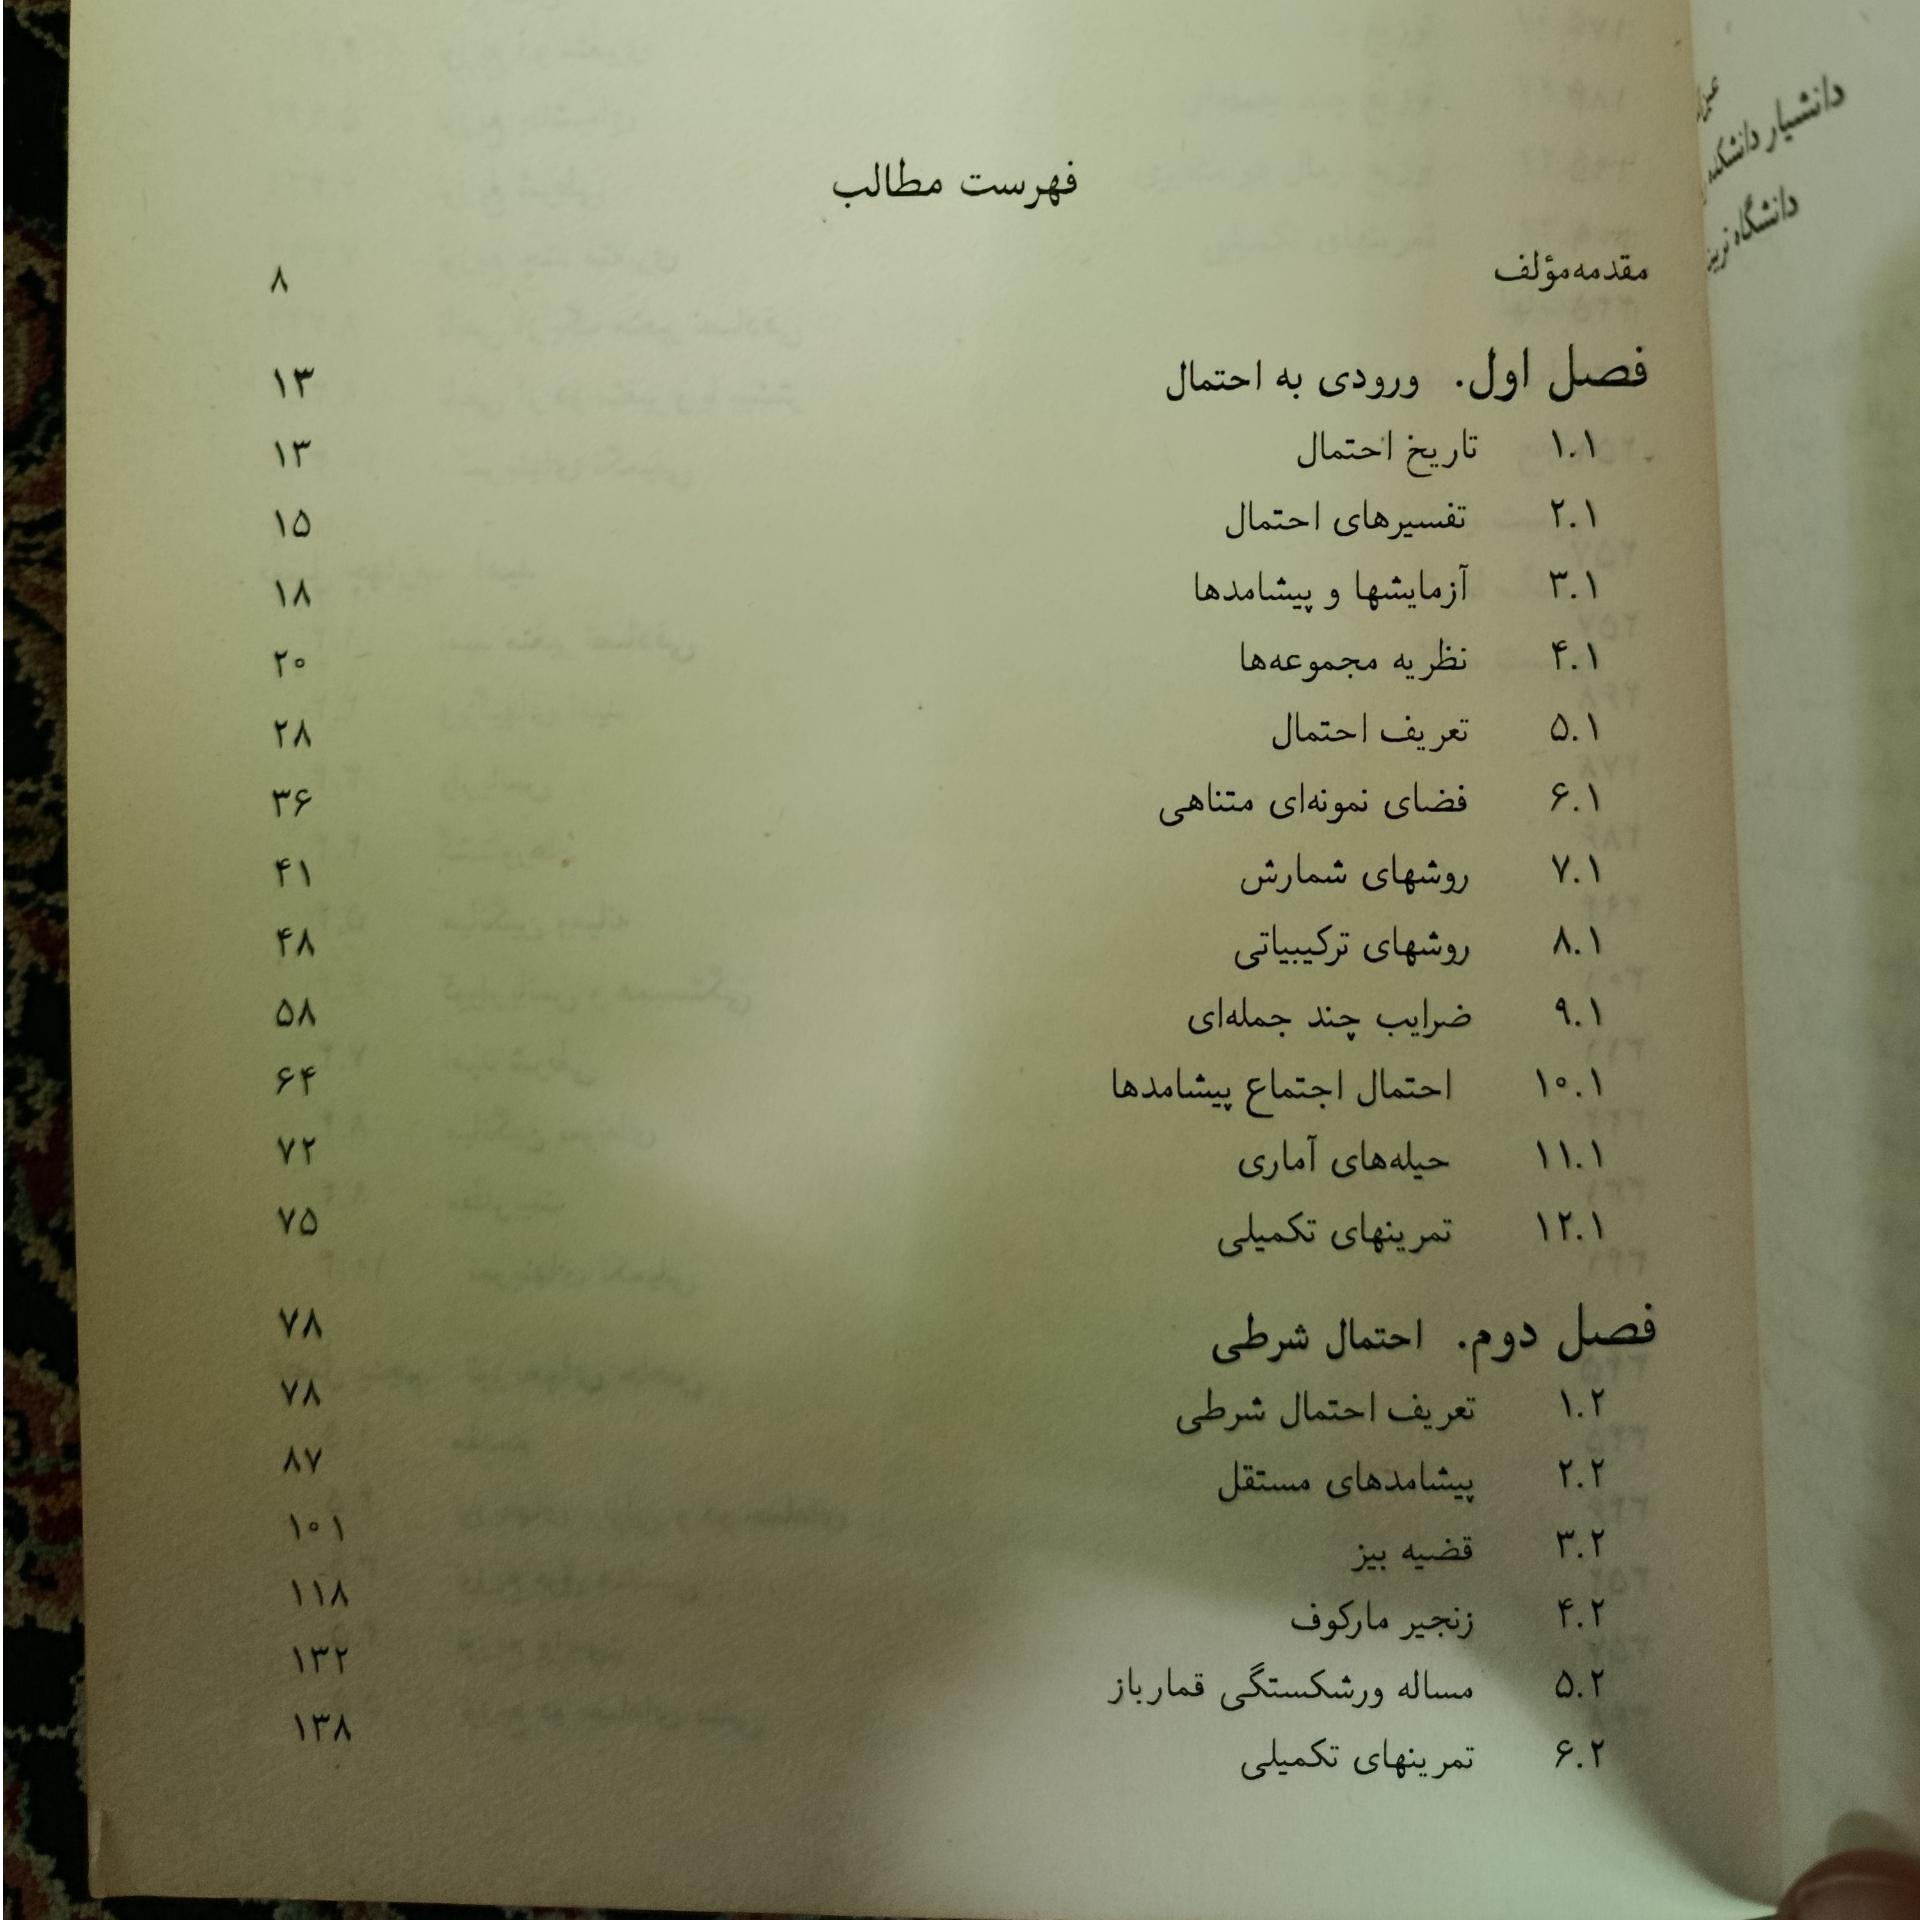 فهرست مطالب
مقدمه مؤلف ۸
فصل اول. ورودی به احتمال ۱۳
۱.۱ تاریخ احتمال ۱۳
۲.۱ تفسیرهای احتمال ۱۵
۳.۱ آزمایشها و پیشامدها ۱۸
۴.۱ نظریه مجموعه‌ها ۲۰
۵.۱ تعریف احتمال ۲۸
۶.۱ فضای نمونه‌ای متناهی ۳۶
۷.۱ روشهای شمارش ۴۱
۸.۱ روشهای ترکیبیاتی ۴۸
۹.۱ ضرایب چند جمله‌ای ۵۸
۱۰.۱ احتمال اجتماع پیشامدها ۶۴
۱۱.۱ حیله‌های آماری ۷۲
۱۲.۱ تمرینهای تکمیلی ۷۵
فصل دوم. احتمال شرطی ۷۸
۱.۲ تعریف احتمال شرطی ۷۸
۲.۲ پیشامدهای مستقل ۸۷
۳.۲ قضیه بیز ۱۰۱
۴.۲ زنجیر مارکوف ۱۱۸
۵.۲ مساله ورشکستگی قمارباز ۱۳۲
۶.۲ تمرینهای تکمیلی ۱۳۸
دانشیار دانشکده
دانشگاه